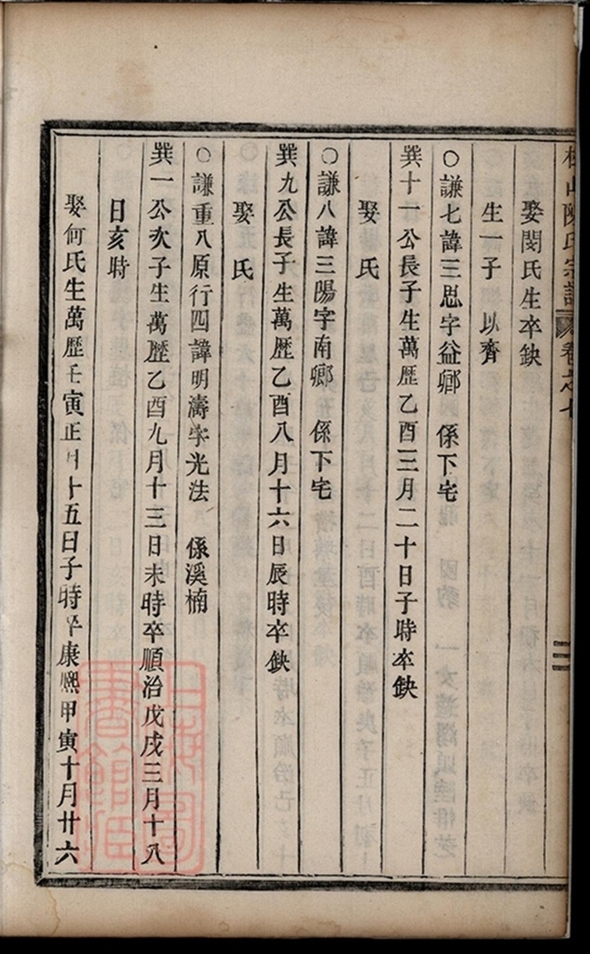 山陳氏宗譜 卷之十
娶閔氏生卒缺
生一子 以齊
○謙七諱三思字益卿 係下宅
巽十一公長子生萬歷乙酉三月二十日子時卒缺
娶 氏
○謙八諱三陽字南卿 係下宅
巽九公長子生萬歷乙酉八月十六日辰時卒缺
娶 氏
○謙重八原行四諱明濤字光法 係溪楠
巽一公次子生萬歷乙酉九月十三日未時卒順治戊戌三月十八
日亥時
娶何氏生萬歷壬寅正月十五日子時卒康熙甲寅十月廿六